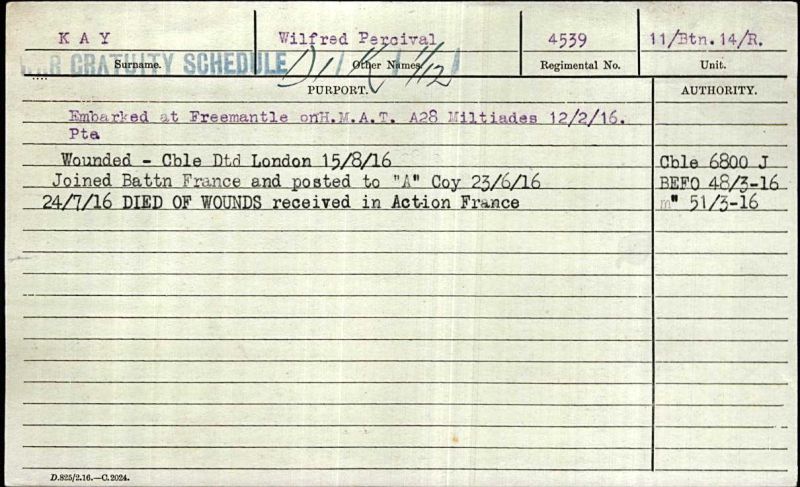 KAY Wilfred Percival 4539 11/Btn.14/R.
Surname. Other Names. Regimental No. Unit.
WAR GRATUITY SCHEDULE
PURPORT. AUTHORITY.
Embarked at Freemantle onH.M.A.T. A28 Miltiades 12/2/16.
Pte
Wounded - Cble Dtd London 15/8/16 Cble 6800 J
Joined Battn France and posted to "A" Coy 23/6/16 BEFO 48/3-16
24/7/16 DIED OF WOUNDS received in Action France " 51/3-16
D.825/2.16.—C.2024.